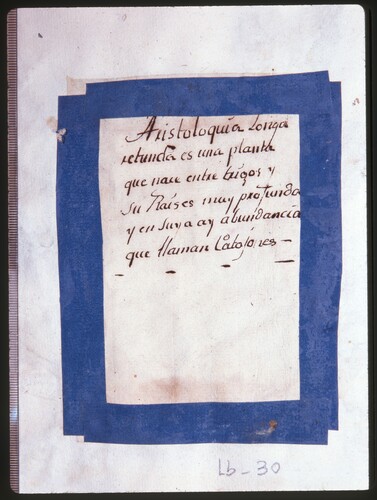 Aristoloquia Longa
retunda es una planta
que nace entre trigos y
Su Rais es muy profunda
y en suya ay abundancia
que llaman
Lb-30